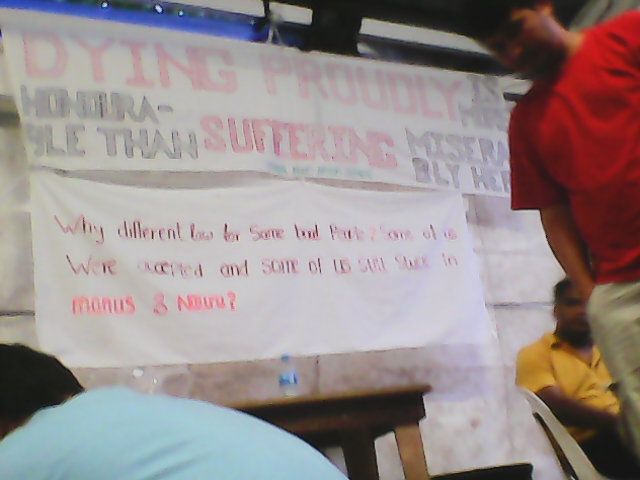 DYING PROUDLY IS
HONOURA- MORE
BLE THAN SUFFERING MISERA
BLY HERE
Why different law for Same boat People? Some of us
Were accepted and some of us still stuck in
manus & Nauru?